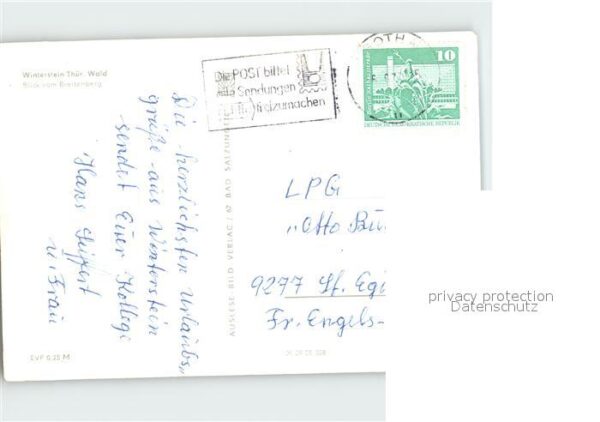 Winterstein Thür. Wald
Blick vom Breitenberg
Die herzlichsten Urlaubs-
grüße aus Winterstein
sendet Euer Kollege
Hans Seiffert
u. Frau
EVP 0,25 M
AUSLESE-BILD-VERLAG / 62 BAD SALZUNGEN
Die POST bittet
alle Sendungen
freizumachen
OTH
10
DEUTSCHE DEMOKRATISCHE REPUBLIK
LPG
„Otto Bu
9277 St. Egi
Fr. Engels-
privacy protection
Datenschutz